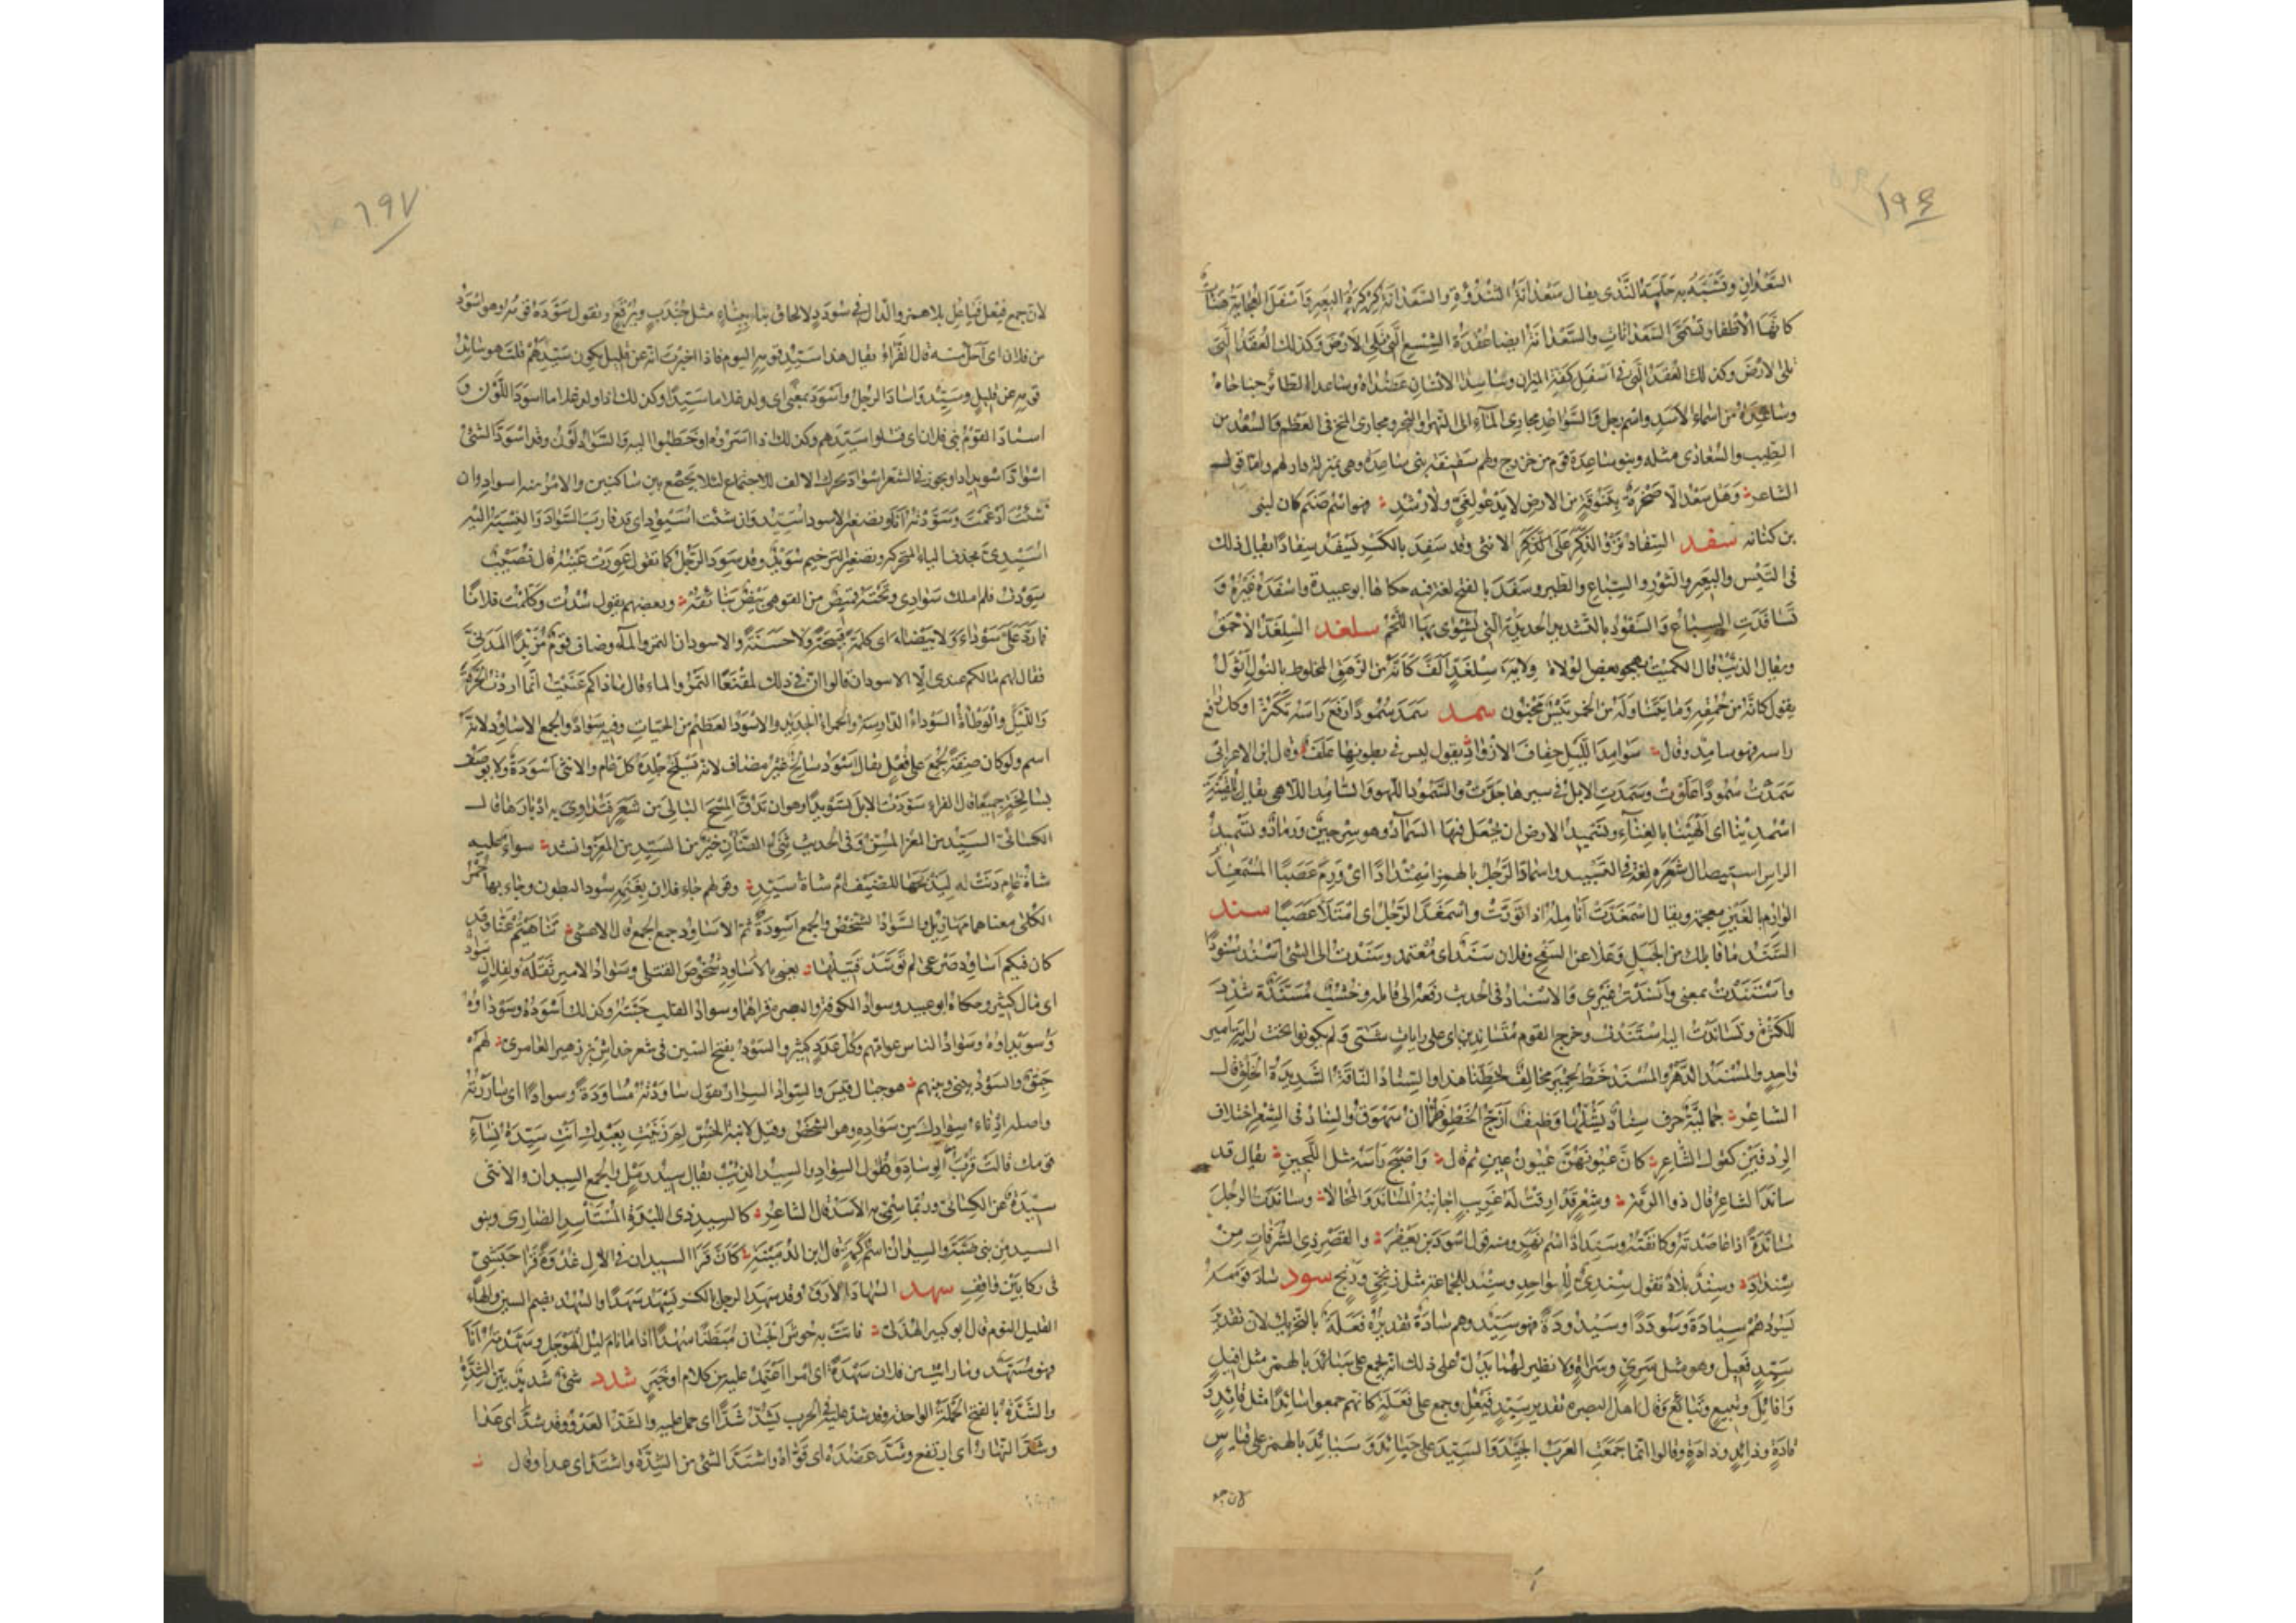 ١٩٦
السَّعْدَانِ وتُشَبَّهُ به حَلَمَةُ الثَّدى يقال سَعْدَانَةُ الثُّنْدُوَةِ والسَّعْدَانَةُ كِرْكِرَةُ البَعِيرِ وَأَسْفَلَ العُجَايَةِ هَنَاتٌ
كانّها الأظفار تسمَّى السَّعْدَانَاتِ والسَّعْدَانَةُ ايضا عُقْدَةُ الشِّسْعِ الَّتى تَلِى الأرْضَ وكذلك العُقَدُ الَّتى
تلى الارضَ وكذلك العُقَدُ الَّتى فى أسفل كِفّة الميزان وساعِدا الانسانِ عَضُداه وساعدا الطائر جناحاه
وساعِدَة من اسماء الأسد واسم رجل والسَّوَاعِد مجارى الماء الى النهر والبحر ومجارى المخ فى العظم والسُّعْد من
الطيب والسُّعَادى مثله وبنو ساعدة قوم من خزرج ولهم سقيفة بنى ساعدة وهى بمنزلة دار لهم وامّا قول
الشاعر وَهَلْ سَعْدٌ الّا صَخْرَةٌ بِتَنُوفَةٍ من الارض لا يَدْعُو لِغَىٍّ ولا رُشْدِ فهو اسْمُ صَنَم كان لبنى
بن كنانه سفد السِّفاد نَزْوُ الذَّكَرِ عَلَى الانثى وقد سَفِدَ بالكَسْرِ يَسْفَدُ سِفَادًا يقال ذلك
فى التَّيْس والبَعِير والثَّوْر والسِّبَاع والطَّير وسَفَدَ بالفتح لغة فيه حكاها ابو عبيدة واسفده غَيْرُهُ وَ
تَسَافَدَتِ السِّبَاعُ وَالسَّفُّودُ بالتّشديد الحديدة التى يُشْوى بها اللَّحْم سلغد السِّلَّغْدُ الأحْمَقُ
ويقال الذئب قال الكميت يهجو بعض الولاة وِلايةُ سِلَّغْدٍ أَلَفَّ كَأَنَّهُ من الرَّهَقِ المخلوط بالنُّوكِ أَثْوَلُ
يقول كانّه من حُمْقِه وَمَا يَتَناوله من الخمر تَيْسٌ مَجْنُون سمد سَمَدَ سُمُودًا رَفَعَ رَأسَهُ تَكَبُّرًا وكلّ رافع
راسه فهو سامِدٌ وقال سَوَامِدَ اللَّيْلِ خِفَافَ الأَزْوَادْ يقول ليس فى بطونها عَلَفٌ وقال ابن الاعرابى
سَمَدْتُ سُمُودًا عَلَوْتُ وسَمَدَتِ الابلُ فى سيرها جَدَّتْ والسُّمُودُ اللّهو والسَّامِدُ اللّاهى يقال لِلْقَيْنَةِ
اسْمُدِينَا اى ألْهِينَا بالغِنَاء وتَسْمِيدُ الارض ان يُجْعَلَ فيها السَّمَادُ وهو سِرْجِينٌ وَرَمَادٌ وتَسْمِيدُ
الراس استيصال شَعَرِه لغة فى التسبيد واسْمَادَّ الرَّجُلُ بالهمز اسْمِئْدَادًا اى وَرِمَ غَضَبًا المُسْمَغِدُّ
الوارم بالغَيْنِ معجمة ويقال اسْمَغَدَّتْ أَنَامِلُهُ اذا تورّمت واسمغدّ الرَّجُلُ اى امْتَلَأَ غَضَبًا سند
السَّنَدُ ما قابلك من الجَبَل وَعَلا عن السَّفْح وفلان سَنَدٌ اى مُعْتَمَد وسَنَدْتُ الى الشئ أَسْنُدُ سُنُودًا
واسْتَنَدْتُ بمعنى وأَسْنَدْتُ غَيْرِى والاسْنَادُ فى الحديث رفعه الى قائله وخُشُبٌ مُسَنَّدَة شُدِّدَ
للكثرة وتَسَانَدْتُ اليه اسْتَنَدْتُ وخرج القوم مُتَسَانِدِينَ اى على راياتٍ شَتَّى ولم يكونوا تحت راية امير
واحِدٍ والمُسْنَد الدَّهْر والمُسْنَد خَطّ لِحِمْيَر مخالف لخطّنا هذا والسِّنَادُ النَّاقَةُ الشَّدِيدَةُ الخَلْق قال
الشاعر جُمَالِيَّةٌ حَرْفٌ سِنَادٌ يَشُلُّهَا وَظِيفٌ أزَجُّ الخَطْوِ ظَمْآنُ سَهْوَقُ والسِّنَاد فى الشِّعْرِ اختلاف
الرِّدْفَيْن كقول الشاعر كَانَّ عُيُونَهُنَّ عُيُونُ عِينِ ثم قال وَاصْبَحَ رَأسُهُ مثل اللُّجَينِ يقال قد
ساندَ الشاعر قال ذو الرُّمَّة وشِعْرٍ قد أرِقْتُ لَهُ غَرِيبٍ أُجَانِبُهُ المُسَانَدَ وَالمُحَالا وسانَدْتُ الرجلَ
مُسَانَدَةً اذا عاضدته وكانَفْتَهُ وسِنْدَادُ اسْم نَهْر ومنه قول اسْوَدَ بن يَعْفُرَ والقَصْرِ ذِى الشُّرُفَاتِ مِنْ
سِنْدَادِ وسِنْدٌ بلادٌ تقول سِنْدِىٌّ للواحِدِ وسِنْد للجماعة مثل زِنْجِىّ وزِنْج سود سَادَ قَوْمَهُ
يَسُودُهُمْ سِيَادَةً وَسُودَدًا وسَيْدُودَةً فهو سَيِّد وهم سَادَةٌ تقديرُه فَعَلَةٌ بالتحريك لان تقدير
سَيِّدٍ فَعِيل وهو مثل سَرِىّ وسَرَاةٍ ولا نظير لهما يَدُلُّ على ذلك انّه يُجمع على سَيَائِدَ بالهمز مثل افيلٍ
وَافَائِلَ وتَبِيعٍ وتَبَائِعَ وقال اهل البصرة تقدير سَيِّدٍ فَيْعِل وجمع على فَعَلَةٍ كانّهم جمعوا سائِدًا مثل قائِدٍ و
قادَةٍ وذائِدٍ وذادَةٍ وقالوا انّما جَمَعَتِ العَرَبُ الجَيِّدَ وَالسَّيِّدَ على جَيَائِدَ وَ سَيَائِدَ بالهمز على قياس
لان جمع
١٩٧
لانّ جمع فَيْعِل فَيَاعِل بلا همز والدال فى سُودَدٍ لالحاق بناء ببناء مثل جُنْدَبٍ وبُرْقُعٍ وتقول سَوَّدَهُ قومُه وهو اسْوَدُ
من فلان اى أجَلّ منه قال الفَرَّاء يقال هذا سَيِّدُ قومه اليوم فاذا اخبرت انّه عن قليل يكون سَيِّدَهُمْ قلت هو سائِدُ
قومه عن قليل وسَيِّدٌ وَاسَادَ الرجل وأَسْوَدَ بمعنًى اى ولد غلاما سَيِّدًا وكذلك اذا ولد غلاما اسود اللّون وَ
استاد القَوْمُ بنى فلان اى قتلوا سَيِّدهم وكذلك اذا اسَرُوه او خَطَبُوا اليه والسَّوَاد لَوْن وقد اسْوَدَّ الشئ
اسْوِدَادًا واسوَادَّ اسويدادا ويجوز فى الشعر اسْوَأَدَّ تحرّك الالف لئلا يُجْمَع بين ساكنين والامْرُ منه اسوادِد وان
شئت ادْغَمْتَ وسَوَّدْتُه أنَا وتصغير الاسود أُسَيِّد وان شئت أُسَيْوِد اى قد قارَبَ السَّوَاد والنِّسْبَة اليه
أُسَيْدِىٌّ بحذف الياء المتحركة وتصغير الترخيم سُوَيْد وقد سَوِدَ الرَّجُل كما تقول عَوِرَتْ عَيْنُه قال نُصَيْبٌ
سَوِدْتُ فلم املك سَوَادى وتَحْتَهُ قميصٌ من القوهىّ بِيضٌ بَنَائِقُهْ وبعضهم يقول سُدْتُ وكَلَّمْتُ فلانًا
فما ردّ عَلَىَّ سَوْدَاءَ وَلا بَيْضَاء اى كلمةً قبيحةً ولا حَسَنَةً والاسودان التمر والماء وضاف قومٌ مُزَبِّدًا المَدَنِىَّ
فقال لهم مالكم عندى الّا الاسودان قالوا انّ فى ذلك لَمَقْنَعًا التّمْرُ والماء قال ما ذاكم عَنَيْتُ انّما اردت الحَرَّةَ
وَاللَّيْلَ والوَطْأَةُ السَّوْدَاءُ الدّارِسَة والحمراءُ الجديدة والاسْوَدُ العظيم من الحيّات وفيه سَوَادٌ والجمع الاساود لانّه
اسم ولو كان صِفَةً لَجُمِعَ على فُعْلٍ يقال أَسْوَد سَالِخٌ غيْرُ مضاف لانّه يَسْلَخُ جِلْدَهُ كل عام والانثى أَسْوَدَةٌ ولا توصف
بسالِخَةٍ جميعا قال الفراء سَوَّدْتُ الابل تَسْوِيدًا وهو ان تَدُقَّ المِسْحَ البالِىَ من شَعَرٍ فَتُدَاوِىَ به ادبارها قال
الكسائى السَّيِّد من المعز المُسِنّ وفى الحديث ثَنِىُّ الضَّأْنِ خَيْرٌ من السَّيِّد من المَعْزِ وانشد سواءٌ عليه
شاةُ عَامٍ دَنَتْ له لِيَذْبَحَهَا للضيف ام شاةُ سَيِّدِ وقولهم جاء فلان بغَنَمِه سُودَ البطون وجاء بها حُمْرَ
الكُلَى معناهما مهازيل والسَّوَادُ الشخْصُ والجمع أَسْوِدَةٌ ثمّ الاساوِد جمع الجمع قال الاعشى تَنَاهَيْتُمُ عَنَّا وقد
كان فيكم أساوِدُ صَرْعَى لم تُوَسَّد قَتِيلُها يعنى بالأساوِد شُخُوصَ القَتْلى وسَوَادُ الامير ثَقَلُه ولفلان سَوَادٌ
اى مال كثير وحكاه ابو عبيد وسوادُ الكوفة والبصرة قراهما وسوادُ القلب حَبَّتُه وكذلك أَسْوَدُهُ وسَوْدَاؤُهُ
وسُوَيْدَاؤُهُ وسَوَادُ الناس عوامّهم وكُلّ عَدَدٍ كثير والسَّوْدُ بفتح السين فى شعر خداش بن زهير العامرى لَهُمْ
حَبَقٌ والسَّوْدُ بينى وبينهم هو جبال قيس والسِّوادُ السِّرار تقول ساوَدْتُهُ مُسَاوَدَةً وسِوادًا اى سَارَرْتُه
واصله إدْنَاءُ سَوَادِكَ من سَوَادِهِ وهو الشَّخْصُ وقيل لابنة الخُسِّ لِمَ زَنَيْتِ بِعَبْدِك وانْتِ سَيِّدَةُ نِسَاءِ
قومك قالت قُرْبُ الوِسَادِ وطُولُ السِّوَادِ والسِّيدُ الذِّئْبُ يقال سِيدُ رَمْلٍ والجمع السِيدان والانثى
سِيدَةٌ عن الكسائى وربّما سُمِّىَ به الأسَدُ قال الشاعر كالسِّيدِ ذِى اللِّبْدَةِ المُسْتَأْسِدِ الضارى وبنو
السيد من بنى ضَبَّة والسِيدانُ اسْمُ أكَمَةٍ قال ابن الدُّمَيْنَةِ كَأَنَّ قَرَا السيدان فى الآلِ غُدْوَةً قَرَا حَبَشِىٍّ
فى رِكَابَيْنِ وَاقِفِ سهد السُّهَادُ الأَرَقُ وقد سَهِدَ الرجلُ بالكسر يَسْهَدُ سَهَدًا والسُّهُدُ بضم السين والهاء
القليل النوم قال ابو كبير الهُذَلِىُّ فاتَتْ به حُوشَ الجَنَانِ مُبَطَّنًا سُهُدًا اذا ما نام لَيْلُ الهَوْجَلِ وسَهَّدْتُه أَنَا
فهو مُسَهَّد وما رايت من فلان سَهْدَةً اى امرا أَعْتَمِدُ عليه من كلام او خَيْرٍ شدد شئ شَدِيدٌ بَيِّنُ الشِّدَّةِ
والشَّدَّةُ بالفتح الحَمْلَةُ الواحدة وقد شدّ عليه فى الحرب يَشُدُّ شَدًّا اى حمل عليه والشَّدُّ العَدْوُ وقد شَدَّ اى عَدَا
وشَدَّ النّهار اى ارتفع وشَدَّ عَضُدَهُ اى قَوَّاهُ واشْتَدَّ الشئ من الشِّدَّة واشتدّ اى عدا وقال